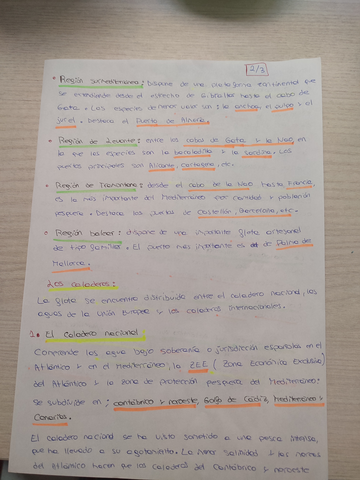 2/3
• Región surmediterránea: dispone de una plataforma continental que
se extiende desde el estrecho de Gibraltar hasta el cabo de
Gata. Las especies de mayor valor son: la anchoa, el pulpo y el
jurel. Destaca el Puerto de Almería.
• Región de Levante: entre los cabos de Gata y la Nao, en
lo que las especies son la bacaladilla y la sardina. Los
puertos principales son Alicante, Cartagena, etc.
• Región de Tramontana: desde el cabo de la Nao, hasta Francia,
es la más importante del Mediterráneo por cantidad y población
pesquera. Destaca los puertos de Castellón, Barcelona, etc.
• Región balear: dispone de una importante flota artesanal
de tipo familiar. El puerto más importante es el de Palma de
Mallorca.
Los caladeros:
La flota se encuentra distribuida entre el caladero nacional, las
aguas de la Unión Europea y los caladeros internacionales.
1. El caladero nacional
Comprende las aguas bajo soberanía o jurisdicción españolas en el
Atlántico y en el Mediterráneo, la ZEE (Zona Económica Exclusiva)
del Atlántico y la zona de protección pesquera del Mediterráneo.
Se subdivide en: cantábrico y noroeste, Golfo de Cádiz, mediterráneo y
Canarias.
El caladero nacional se ha visto sometido a una pesca intensa,
que ha llevado a su agotamiento. La menor salinidad y las
del Atlántico hacen que los caladeros del Cantábrico y noroeste